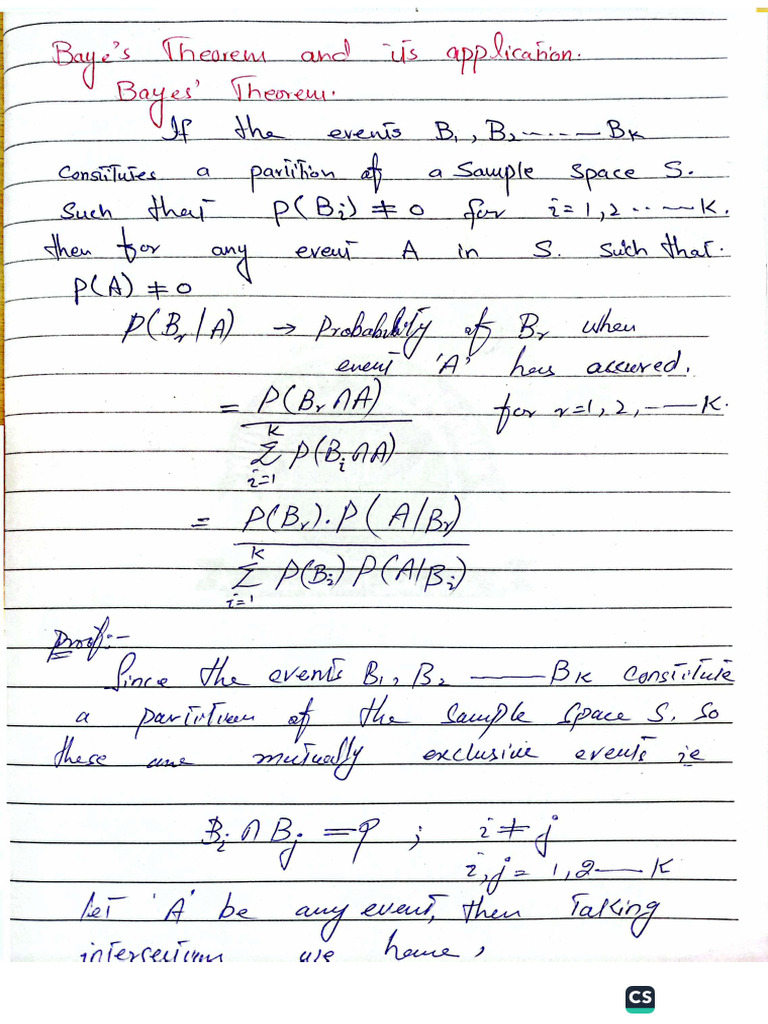 Baye's Theorem and its application.
Bayes' Theorem.
If the events B₁, B₂ ------ Bₖ
Constitutes a partition of a Sample space S.
Such that P(Bᵢ) ≠ 0 for i=1,2 ..---K.
then for any event A in S. such that.
P(A) ≠ 0
P(Bᵣ/A) → Probability of Bᵣ when
event 'A' has occured.
= P(Bᵣ∩A) / Σᵢ₌₁ᴷ P(Bᵢ∩A) for r=1,2,---K.
= P(Bᵣ).P(A/Bᵣ) / Σᵢ₌₁ᴷ P(Bᵢ) P(A/Bᵢ)
Proof:-
Since the events B₁, B₂ ——— Bₖ constitute
a partition of the sample space S. So
these are mutually exclusive events ie
Bᵢ ∩ Bⱼ = φ ; i ≠ j
i,j = 1,2 —— K
Let 'A' be any event, then Taking
intersection we have,
CS